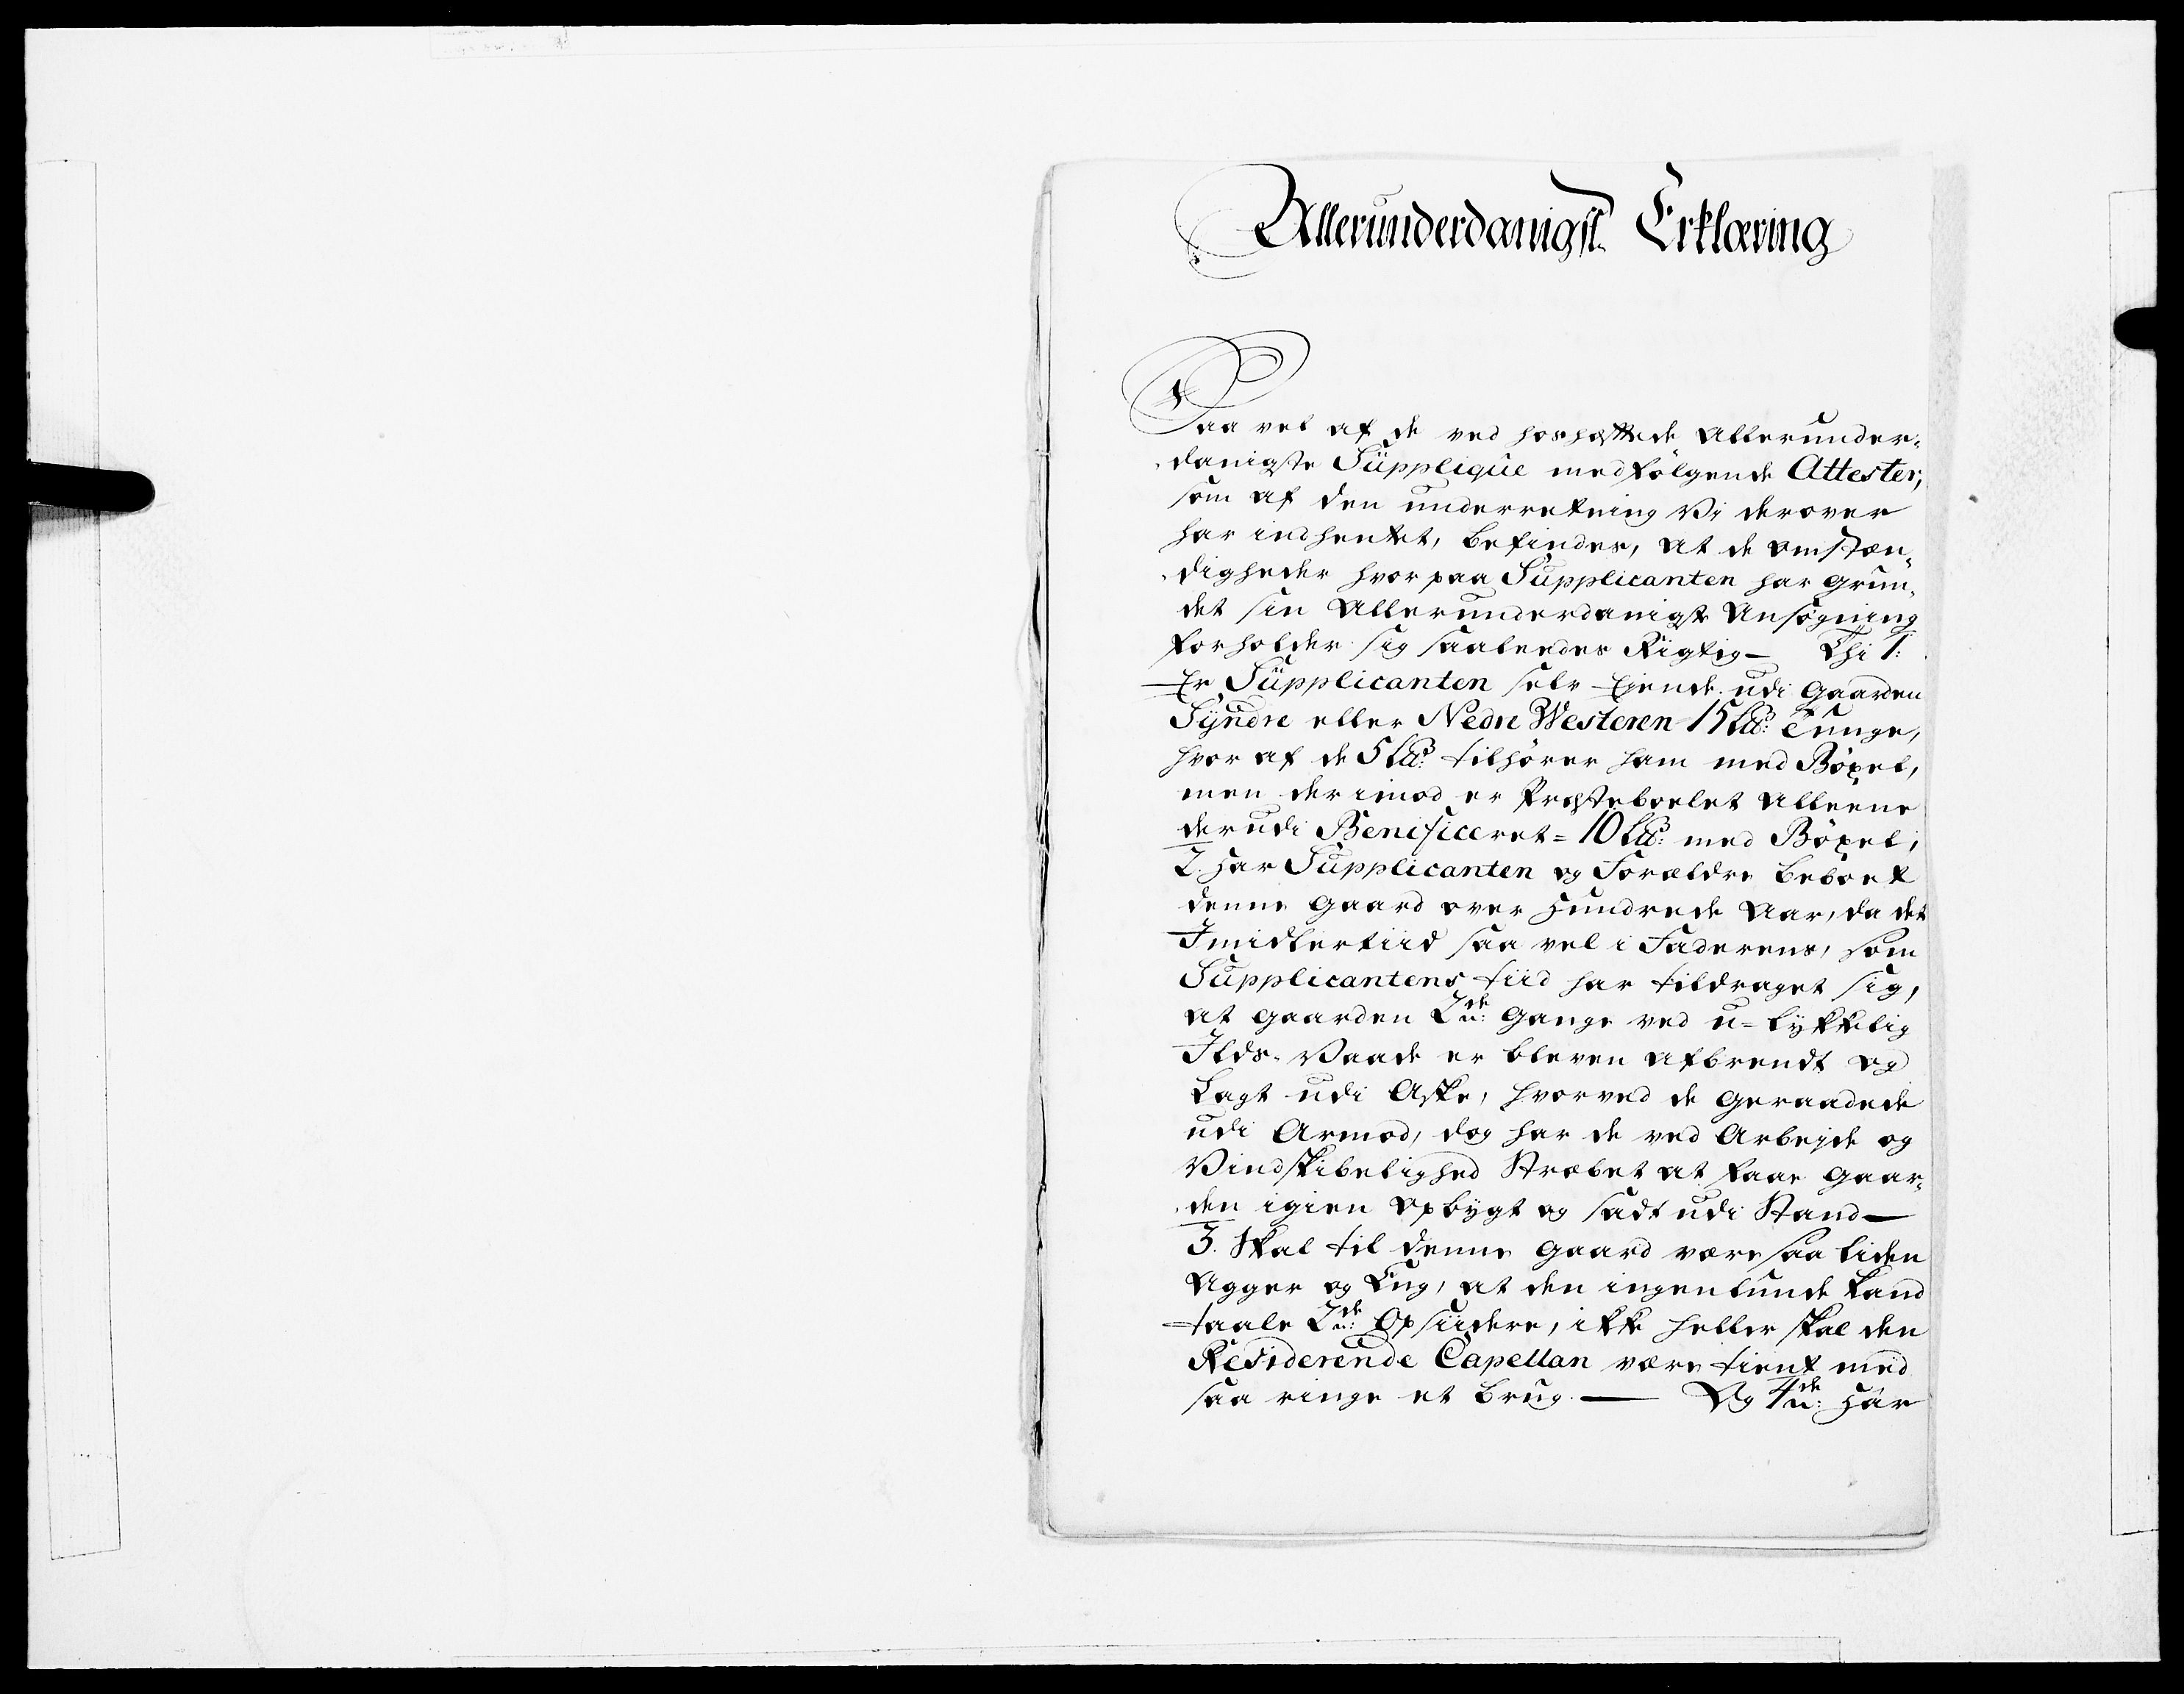 Allerunderdanigst Erklæring
Saa vel af de ved hoshæftede Allerunder-
danigste Supplique medfølgende Attester,
som af den underretning Vi derover
har indhentet, befindes, at de omstæn-
digheder hvorpaa Supplicanten har grun-
det sin Allerunderdanigste Ansøgning
forholder sig saaledes Rigtig — Thi 1:
Er Supplicanten selv Ejende udi Gaarden
Syndre eller Nedre Westeren 15 Tunge,
hvor af de 5 tilhører ham med Böxel,
men derimod er Præsteboelet Alleene
derudi Benificeret = 10 med Böxel;
2. har Supplicanten og Forældre beboet
denne Gaard over Hundrede Aar, da det
Imidlertiid saa vel i Faderens, som
Supplicantens tiid har tildraget sig,
at Gaarden 2de: Gange ved u-lykkelig
Ilds-Vaade er bleven afbrendt og
Lagt udi Aske, hvorved de geraadede
udi Armod, dog har de ved Arbejde og
Vindskibelighed Stræbet at faae Gaar-
den igien opbygt og sadt udi Stand —
3. Skal til denne Gaard være saa liden
Agger og Eng, at den ingenlunde kand
taale 2de: Opsiidere, ikke heller skal den
Residerende Capellan være tient med
saa ringe et brug. — Og 4de: har